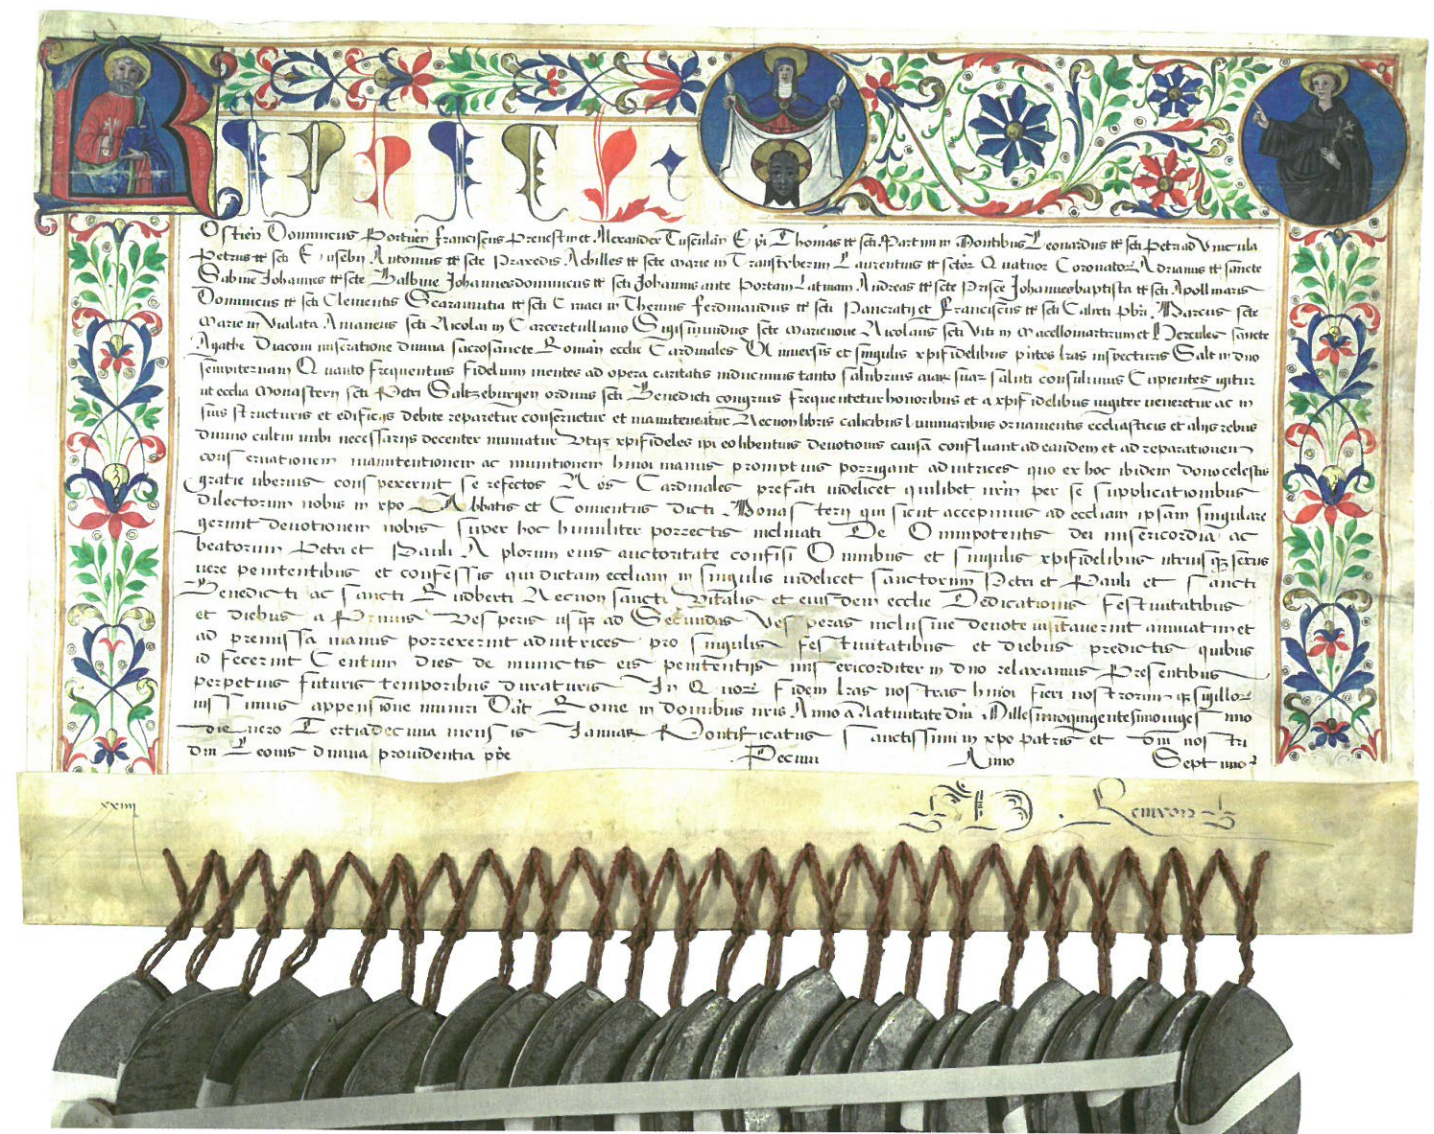 RAPHAEL
Ostien Dominicus Portuen Franciscus Prenestin et Alexander Tusculan Epi Thomas tt sci Martini in Montibus Leonardus tt sci Petri ad Vincula
Petrus tt sci Eusebii Antonius tt scte Praxedis Achilles tt scte Marie in Transtyberim Laurentius tt sctor Quatuor Coronator Adrianus tt sancte
Sabine Johannes tt scte Balbine Johannesdominicus tt scti Johannis ante Portam Latinam Andreas tt scte Prisce Johannesbaptista tt scti Apollinaris
Dominicus tt scti Clementis Scaramutia tt scti Ciriaci in Thermis Ferdinandus tt scti Pancratij et Franciscus tt scti Calixti pbri Marcus scte
Marie in Vialata Amaneus scti Nicolai in Carceretulliano Sigismundus scte Marienove Nicolaus scti Viti in Macellomartirum et Hercules sancte
Agathe Diaconi miseratione divina sacrosancte Roman ecclie Cardinales Universis et singulis xpifidelibus pntes lras inspecturis Salt in dno
sempiternam Quanto frequentius fidelium mentes ad opera caritatis inducimus tanto salubrius aiar suar saluti consulimus Cupientes igitur
ut ecclia Monasterii scti Petri Saltzeburgen ordinis scti Benedicti congruis frequentetur honoribus et a xpifidelibus iugiter veneretur ac in
suis structuris et edificijs debite reparetur conservetur et manuteneatur Necnon libris calicibus luminaribus ornamentis ecclesiasticis et alijs rebus
divino cultui inibi necessarijs decenter muniatur Utqz xpifideles ipi eo libentius devotionis causa confluant ad eandem et ad reparationem
conservationem manutentionem ac munitionem hmoi manus promptius porrigant adiutrices quo ex hoc ibidem dono celestis
gratie uberius conspexerint se refectos Nos Cardinales prefati videlicet quilibet nrm per se supplicationibus
dilectorum nobis in xpo Abbatis et Conventus dicti Monasterij qui sicut accepimus ad eccliam ipsam singulare
gerunt devotionem nobis super hoc humiliter porrectis inclinati De Omnipotentis dei misericordia ac
beatorum Petri et Pauli Aplorum eius auctoritate confisi Omnibus et singulis xpifidelibus utriusqz sexus
vere penitentibus et confessis qui dictam eccliam in singulis videlicet sanctorum Petri et Pauli et sancti
Benedicti ac sancti Rudberti Necnon sancti Vitalis et eiusdem ecclie Dedicationis festivitatibus
et diebus a Primis Vesperis usqz ad Secundas Vesperas inclusive devote visitaverint annuatim et
ad premissa manus porrexerint adiutrices pro singulis festivitatibus et diebus predictis quibus
id fecerint Centum dies de iniunctis eis penitentijs misericorditer in dno relaxamus Presentibus
perpetuis futuris temporibus duraturis In Quor fidem lras nostras hmoi fieri nostrorumqz sigillor
iussimus appensione muniri Dat Rome in domibus nris Anno a Nativitate dni Millesimoquingentesimovigesimo
die vero Tertiadecima mensis Januar Pontificatus sanctissimi in xpo patris et dni nostri
dni Leonis divina providentia ppe Decimi Anno Septimo
xxiiij